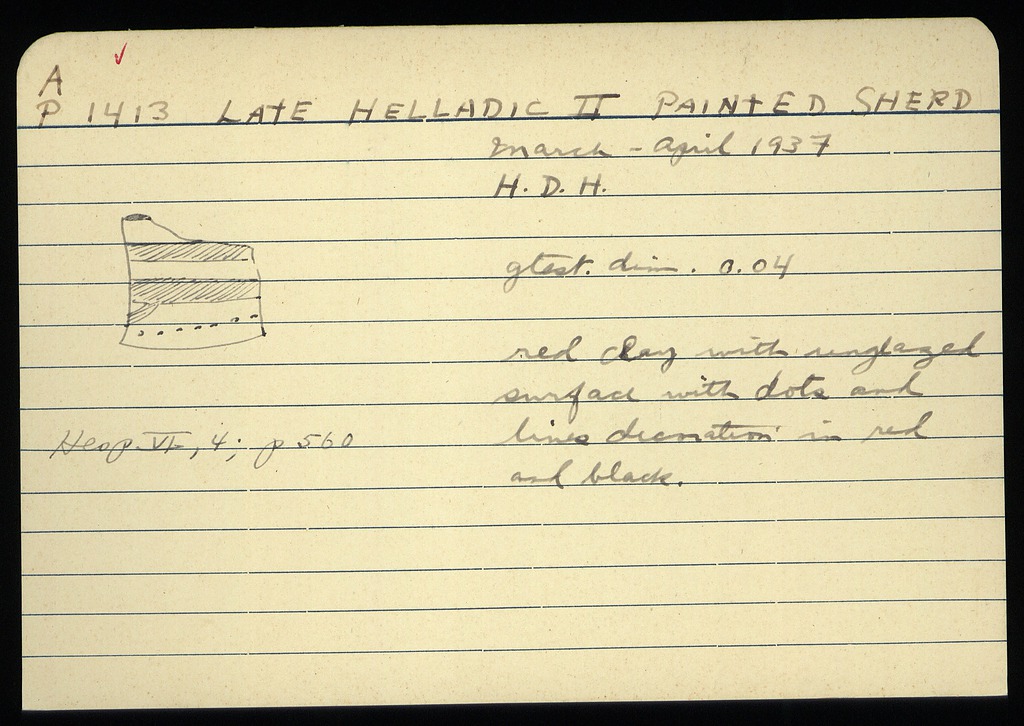 A
P 1413 LATE HELLADIC II PAINTED SHERD
March - April 1937
H. D. H.
gtest. dim. 0.04
red clay with unglazed
surface with dots and
lines decoration in red
and black.
Hesp. VI, 4; p 560